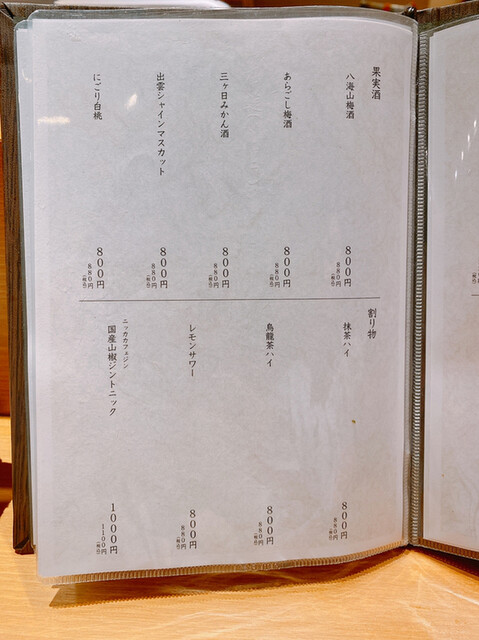 果実酒
八海山梅酒
800円
880円(税込)
あらごし梅酒
800円
880円(税込)
三ヶ日みかん酒
800円
880円(税込)
出雲シャインマスカット
800円
880円(税込)
にごり白桃
800円
880円(税込)
割り物
抹茶ハイ
800円
880円(税込)
烏龍茶ハイ
800円
880円(税込)
レモンサワー
800円
880円(税込)
ニッカカフェジン
国産山椒ジントニック
1000円
1100円(税込)